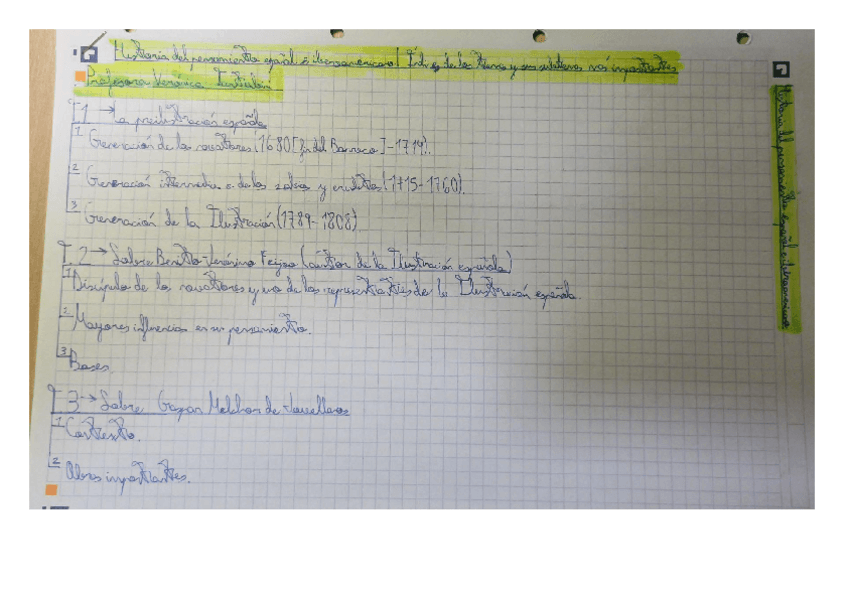 Historia del pensamiento español e iberoamericano/ Índice de los temas y sus subtemas más importantes
Profesora Verónica
T.1 → La preilustración española
1 Generación de los novatores (1680 [fin del Barroco] - 1714).
2 Generación intermedia o de los sabios y eruditos (1715-1760).
3 Generación de la Ilustración (1789-1808)
T.2 → Sobre Benito-Jerónimo Feijoo (autor de la Ilustración española)
1 Discípulo de los novatores y uno de los representantes de la Ilustración española.
2 Mayores influencias en su pensamiento.
3 Bases.
T.3 → Sobre Gaspar Melchor de Jovellanos
1 Contexto.
2 Obras importantes.
Historia del pensamiento español e iberoamericano